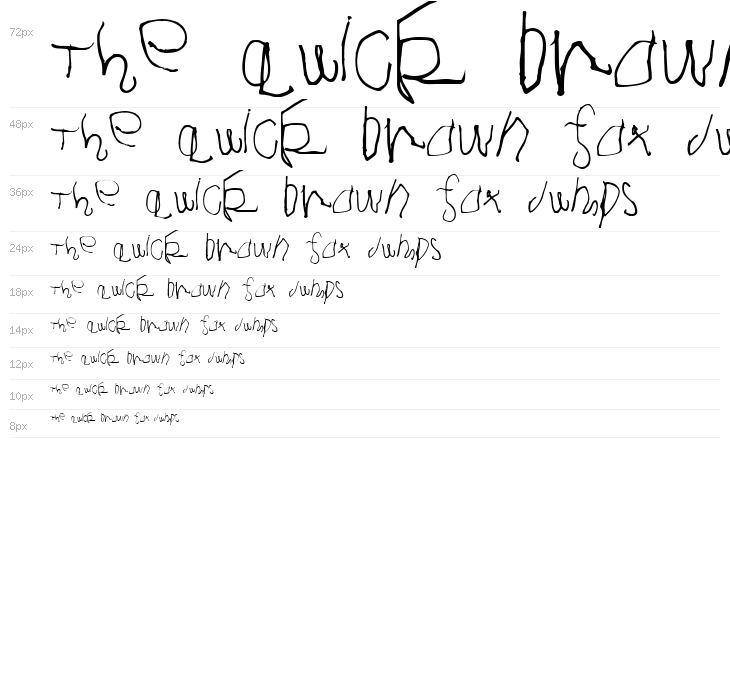 72px The quick brown
48px The quick brown fox
36px The quick brown fox jumps
24px The quick brown fox jumps
18px The quick brown fox jumps
14px The quick brown fox jumps
12px The quick brown fox jumps
10px The quick brown fox jumps
8px The quick brown fox jumps